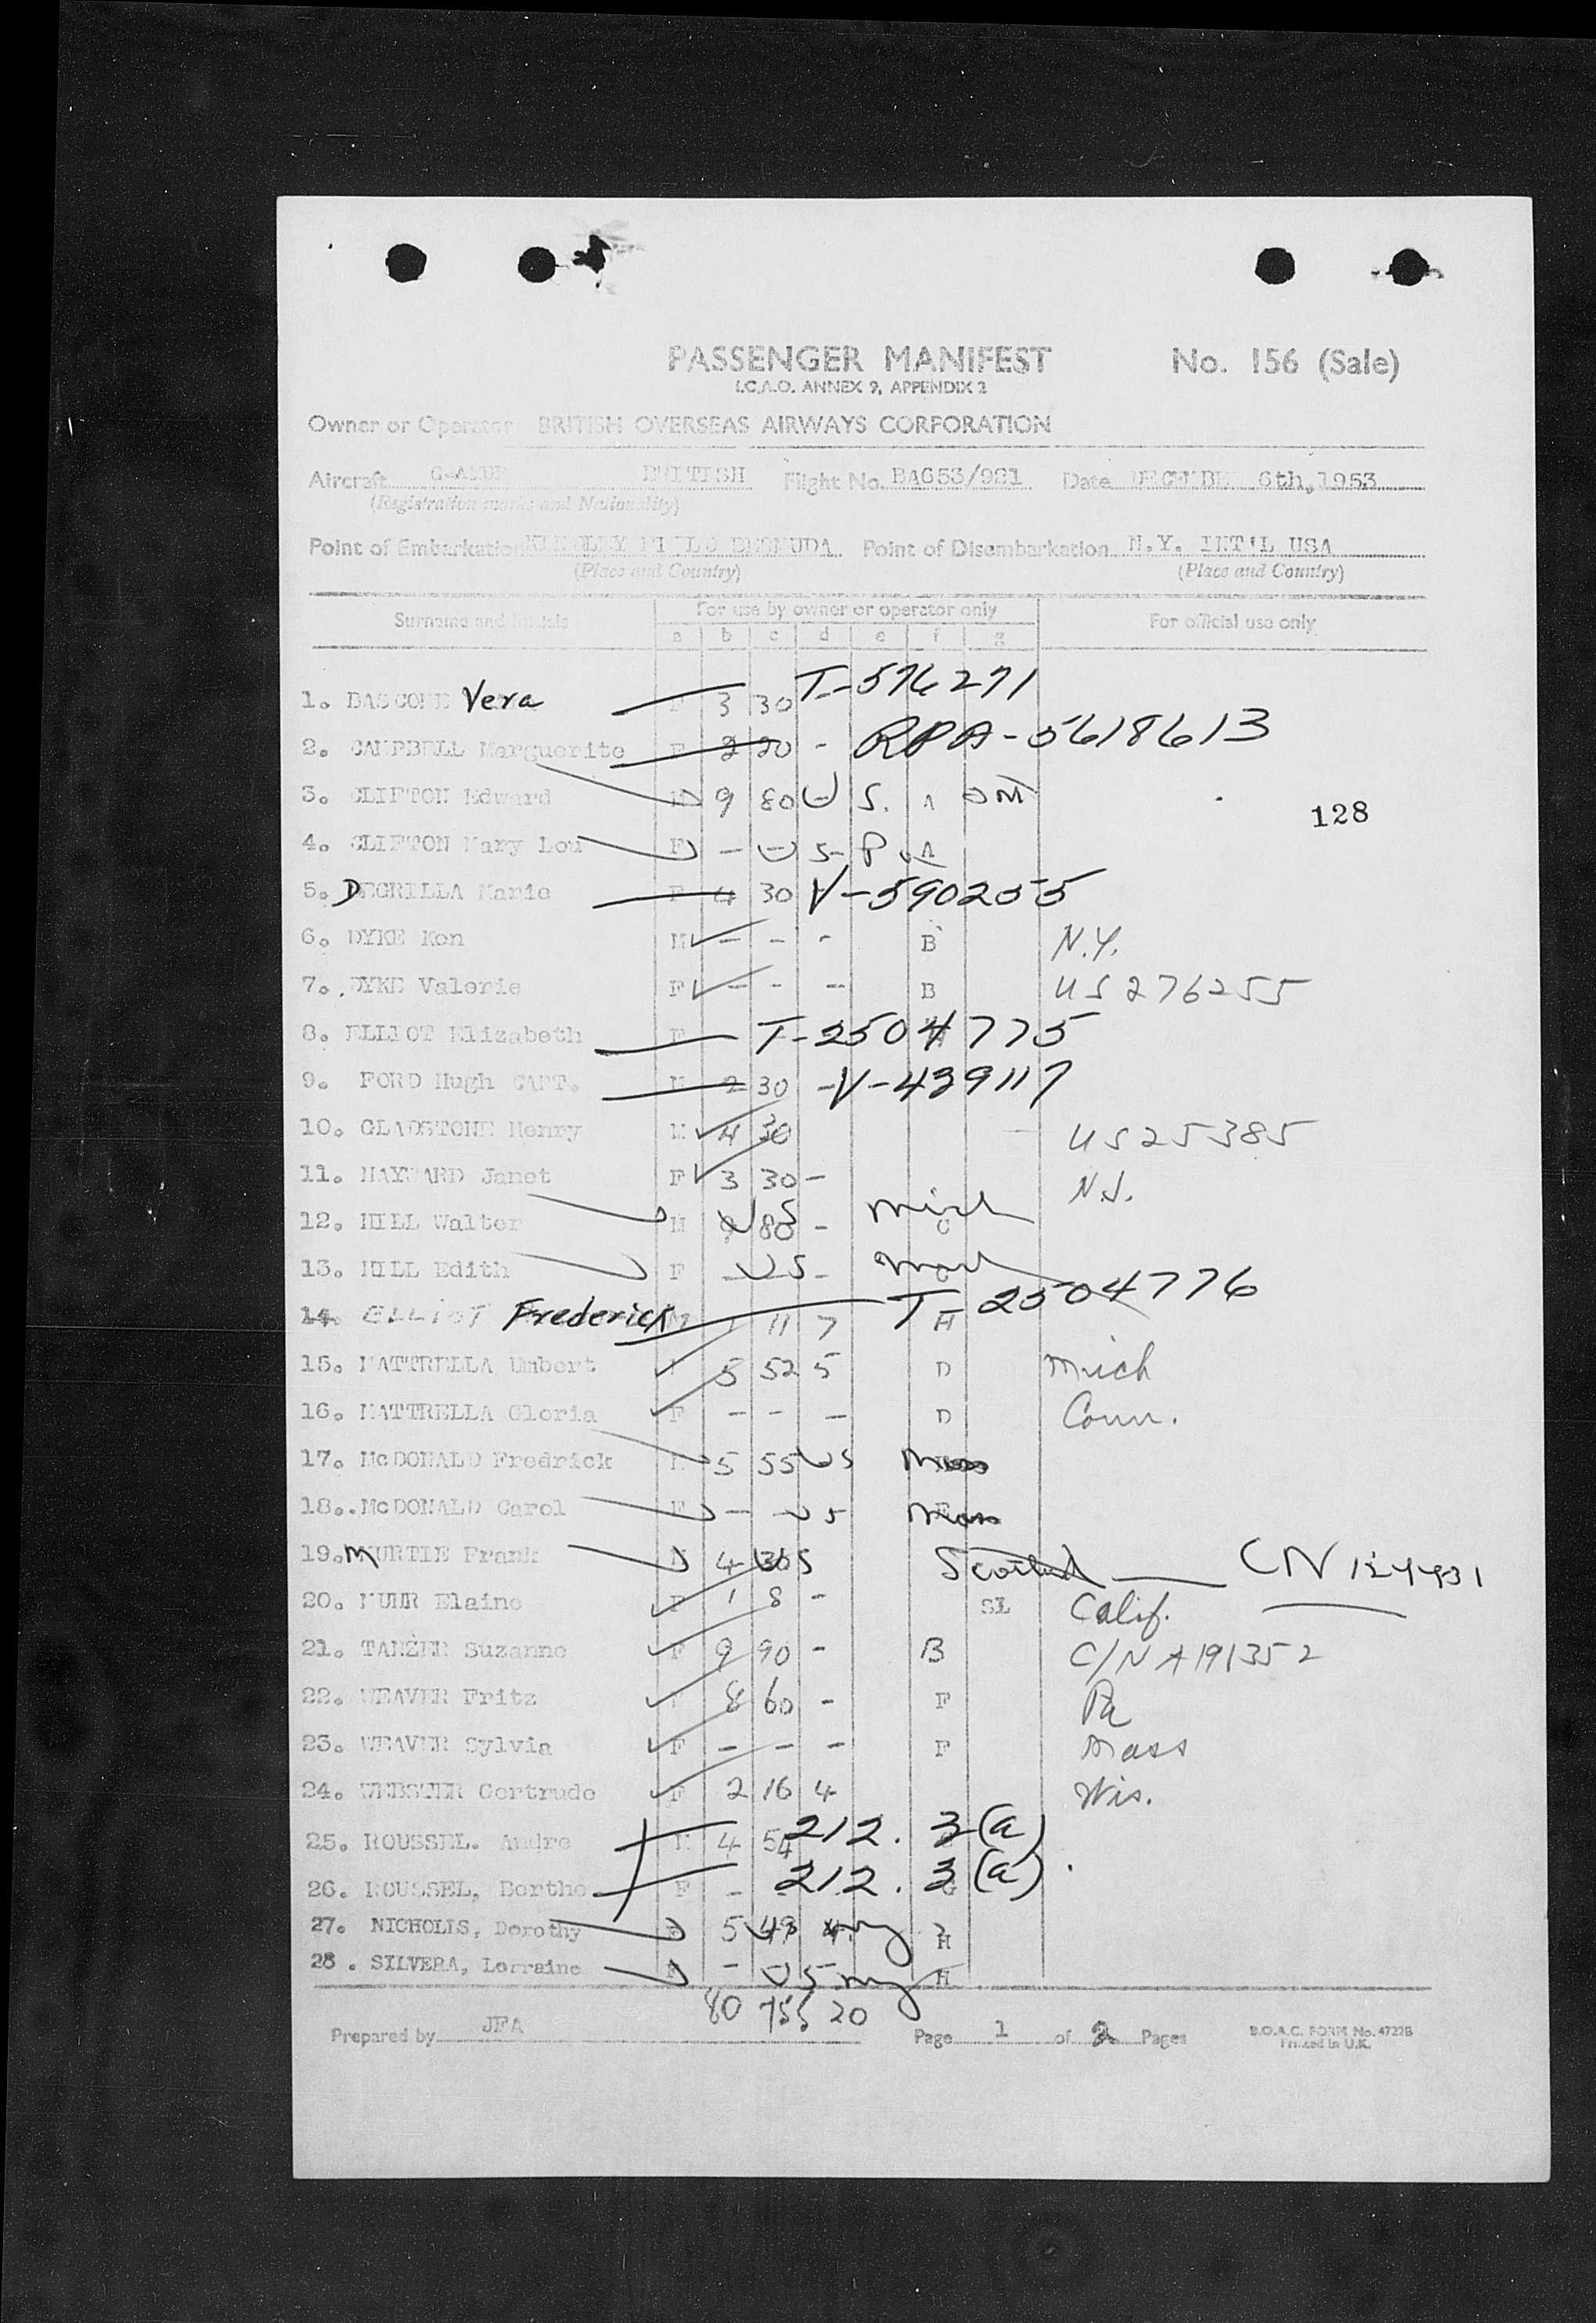 PASSENGER MANIFEST No. 156 (Sale)
I.C.A.O. ANNEX 9, APPENDIX 2
Owner or Operator BRITISH OVERSEAS AIRWAYS CORPORATION
Aircraft BRITISH Flight No. BA653/981 Date DECEMBER 6th, 1953
(Registration marks and Nationality)
Point of Embarkation KINDLEY FIELD BERMUDA Point of Disembarkation N.Y. INT'L USA
(Place and Country) (Place and Country)
Surname and Initials For use by owner or operator only For official use only
a b c d e f g
1. BASCOME Vera F 3 30 - T-576271
2. CAMPBELL Marguerite F 2 20 - RPA-5618613
3. CLIFTON Edward M 9 80 U S. A
128
4. CLIFTON Mary Lou F - - A
5. DEGRILLA Marie F 4 30 V-590255
6. DYKE Ken M - - - B N.Y.
7. DYKE Valerie F - - - B US276255
8. ELLIOT Elizabeth F T-2504775
9. FORD Hugh CAPT. M 2 30 - V-439117
10. GLADSTONE Henry M 4 30 US25385
11. HAYWARD Janet F 3 30 - N.J.
12. HILL Walter M 9 80 US - Mich C
13. HILL Edith F - US -
14. ELLIOT Frederick M 1 11 7 H T-2504776
15. MATTRELLA Umbert 5 52 5 D Mich
16. MATTRELLA Gloria F - - - D Conn.
17. McDONALD Fredrick M 5 55 US Mass
18. McDONALD Carol F - US Mass
19. MURTIE Frank M 4 30 US Scotland CN 124431
20. MUHR Elaine F 1 8 - SL Calif.
21. TANZER Suzanne F 9 90 - B C/N A191352
22. WEAVER Fritz 8 60 - F Pa
23. WEAVER Sylvia F - - - F Mass
24. WEBSTER Gertrude F 2 16 4 Wis.
25. ROUSSEL. Andre M 4 54 212. 3(a)
26. ROUSSEL, Berthe F - 212. 3(a)
27. NICHOLLS, Dorothy F 5 49 4 NY H
28. SILVERA, Lorraine F - US NY H
80 755 20
Prepared by JFA Page 1 of 2 Pages B.O.A.C. FORM No. 4727B
Printed in U.K.